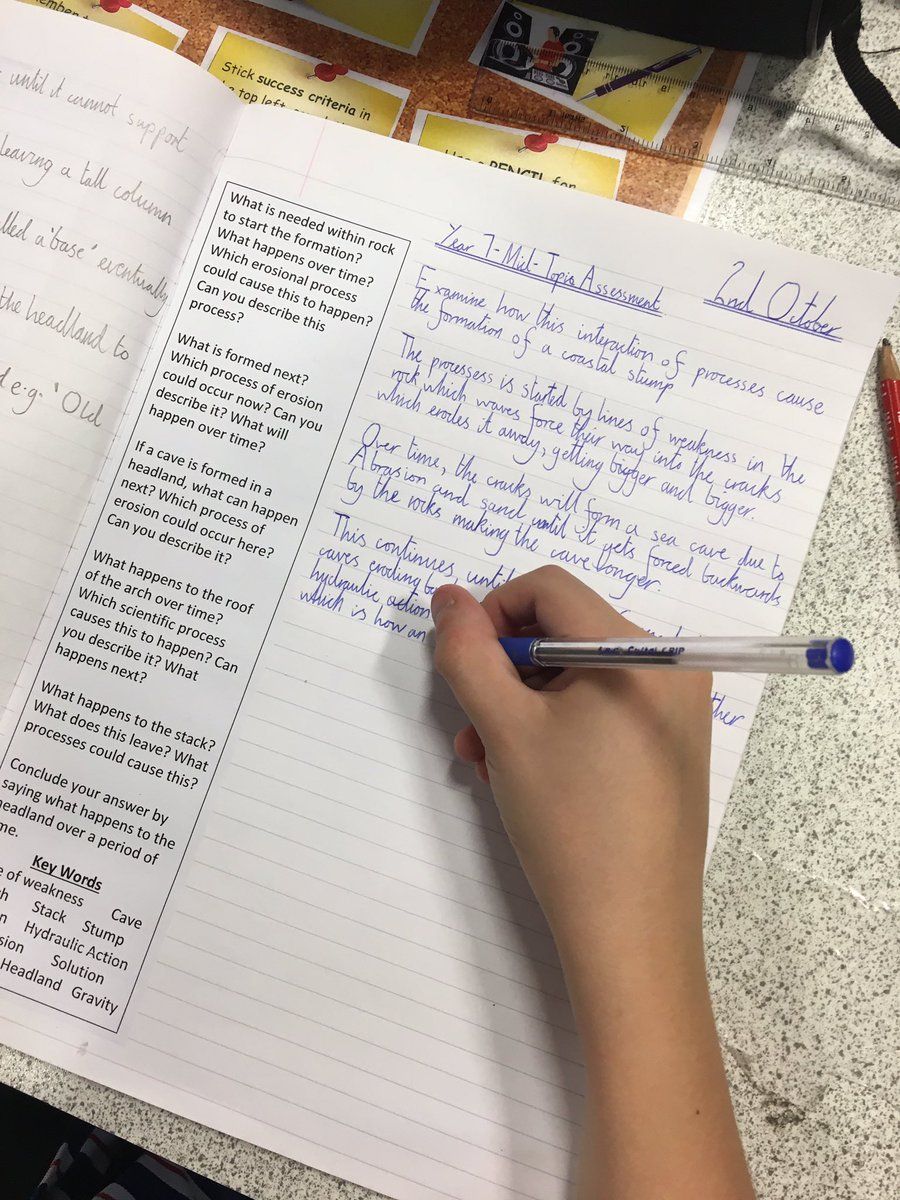 ember to
Stick success criteria in
the top left
PENCIL for
until it cannot
support
leaving a tall column
lled a 'base' eventually
the headland to
e.g. 'Old
What is needed within rock
to start the formation?
What happens over time?
Which erosional process
could cause this to happen?
Can you describe this
process?
What is formed next?
Which process of erosion
could occur now? Can you
describe it? What will
happen over time?
If a cave is formed in a
headland, what can happen
next? Which process of
erosion could occur here?
Can you describe it?
What happens to the roof
of the arch over time?
Which scientific process
causes this to happen? Can
you describe it? What
happens next?
What happens to the stack?
What does this leave? What
processes could cause this?
Conclude your answer by
saying what happens to the
headland over a period of
me.
Key Words
e of weakness Cave
ch Stack Stump
n Hydraulic Action
sion Solution
Headland Gravity
Year 7-Mid-Topic Assessment 2nd October
Examine how this interaction of processes cause
the formation of a coastal stump
The processess is started by lines of weakness in the
rock, which waves force their way into the cracks
which erodes it away, getting bigger and bigger.
Over time, the cracks will form a sea cave due to
Abrasion and sand until it gets forced backwards
by the rocks making the cave longer.
This continues until
caves eroding
hydraulic action
which is how an
ther